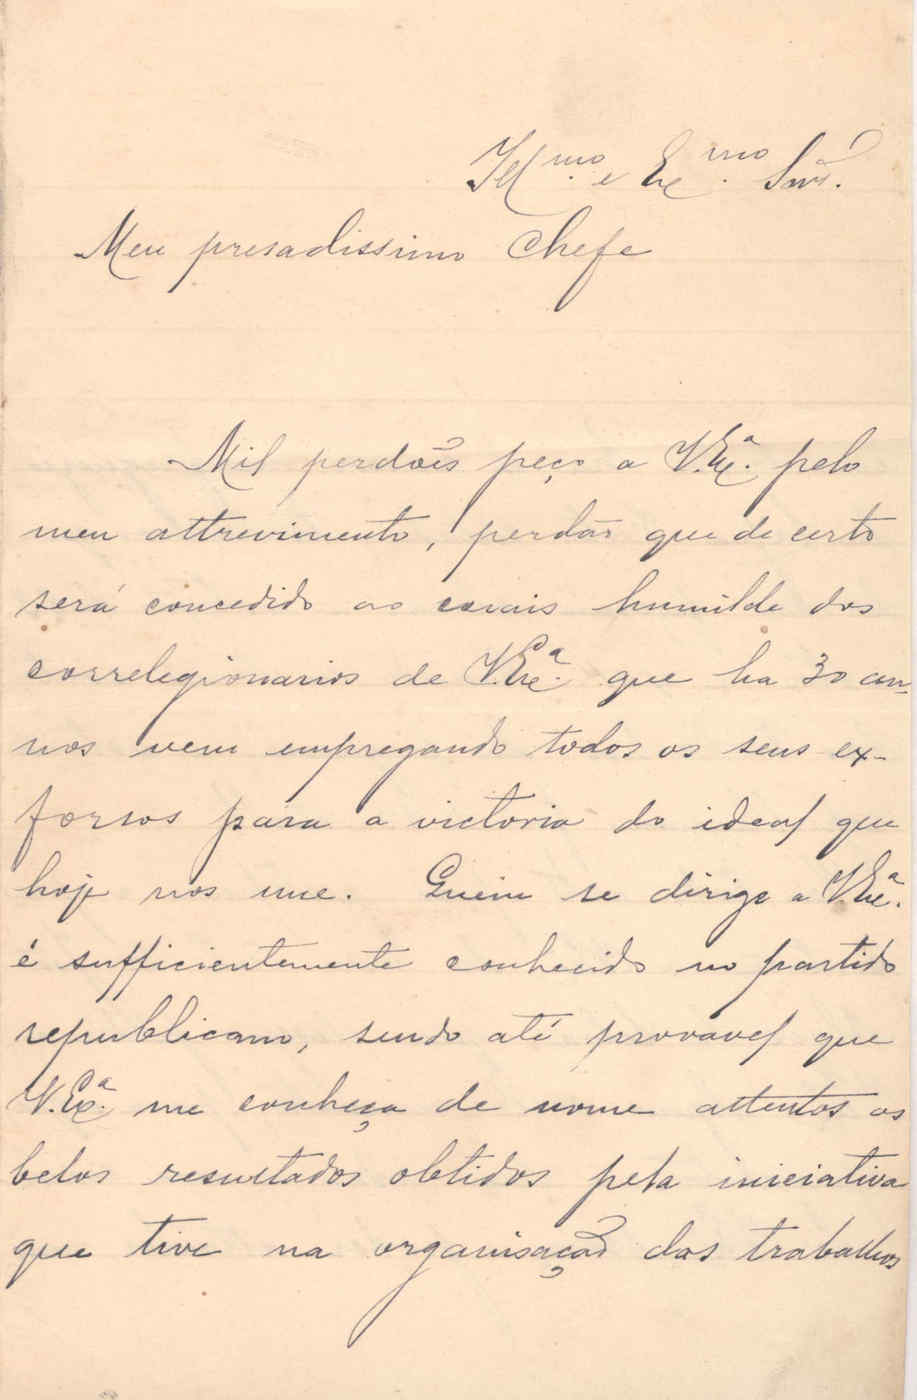 Ill.mo e Ex.mo Snr.
Meu presadissimo Chefe
Mil perdões peço a V. Ex.ª pelo
meu attrevimento, perdão que de certo
será concedido ao mais humilde dos
correlegionarios de V. Ex.ª que ha 30 an-
nos vem empregando todos os seus ex-
forsos para a victoria do ideal que
hoje nos une. Quem se dirige a V. Ex.ª
é sufficientemente conhecido no partido
republicano, sendo até provavel que
V. Ex.ª me conheça de nome attentos os
belos resultados obtidos pela iniciativa
que tive na organisação dos trabalhos